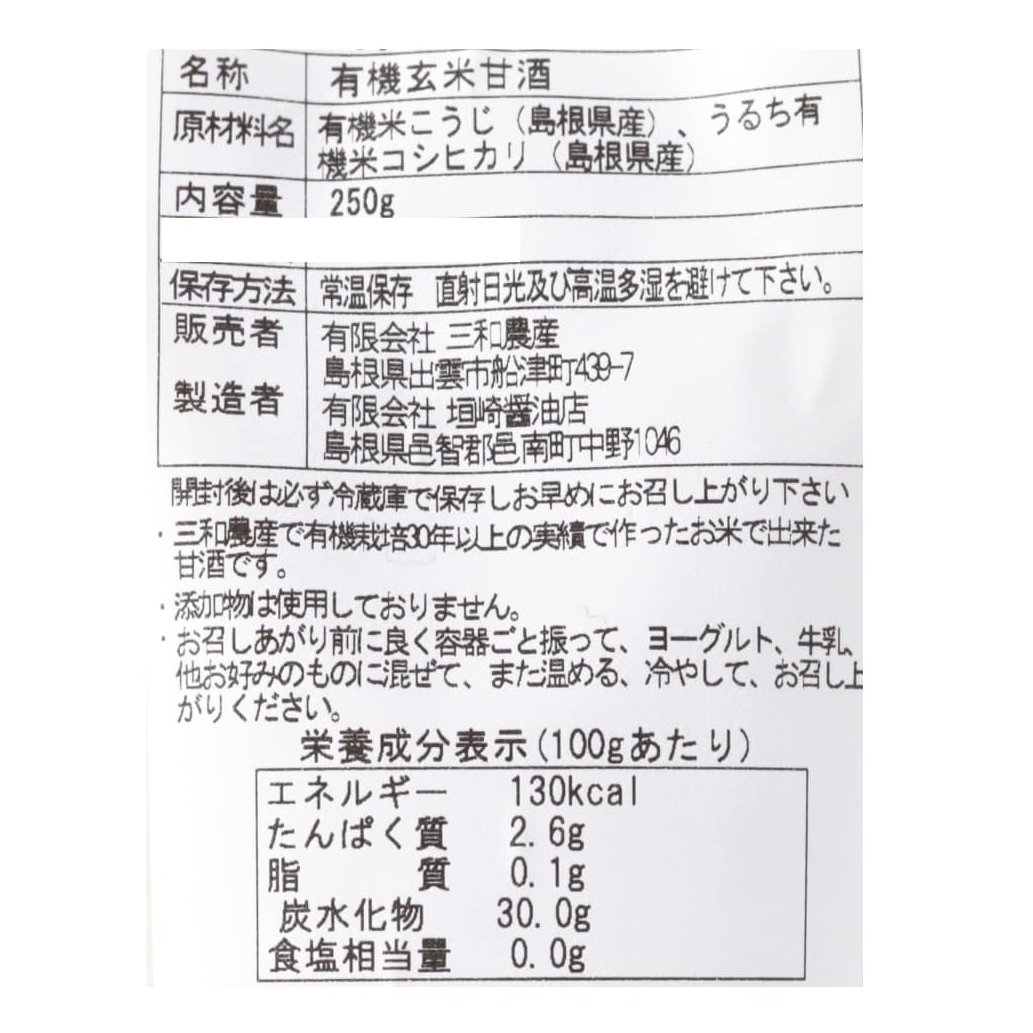 名称 有機玄米甘酒
原材料名 有機米こうじ（島根県産）、うるち有
機米コシヒカリ（島根県産）
内容量 250g
保存方法 常温保存 直射日光及び高温多湿を避けて下さい。
販売者 有限会社 三和農産
島根県出雲市船津町439-7
製造者 有限会社 垣崎醤油店
島根県邑智郡邑南町中野1046
開封後は必ず冷蔵庫で保存しお早めにお召し上がり下さい
・三和農産で有機栽培30年以上の実績で作ったお米で出来た
甘酒です。
・添加物は使用しておりません。
・お召しあがり前に良く容器ごと振って、ヨーグルト、牛乳、
他お好みのものに混ぜて、また温める、冷やして、お召し上
がりください。
栄養成分表示(100gあたり)
エネルギー 130kcal
たんぱく質 2.6g
脂質 0.1g
炭水化物 30.0g
食塩相当量 0.0g